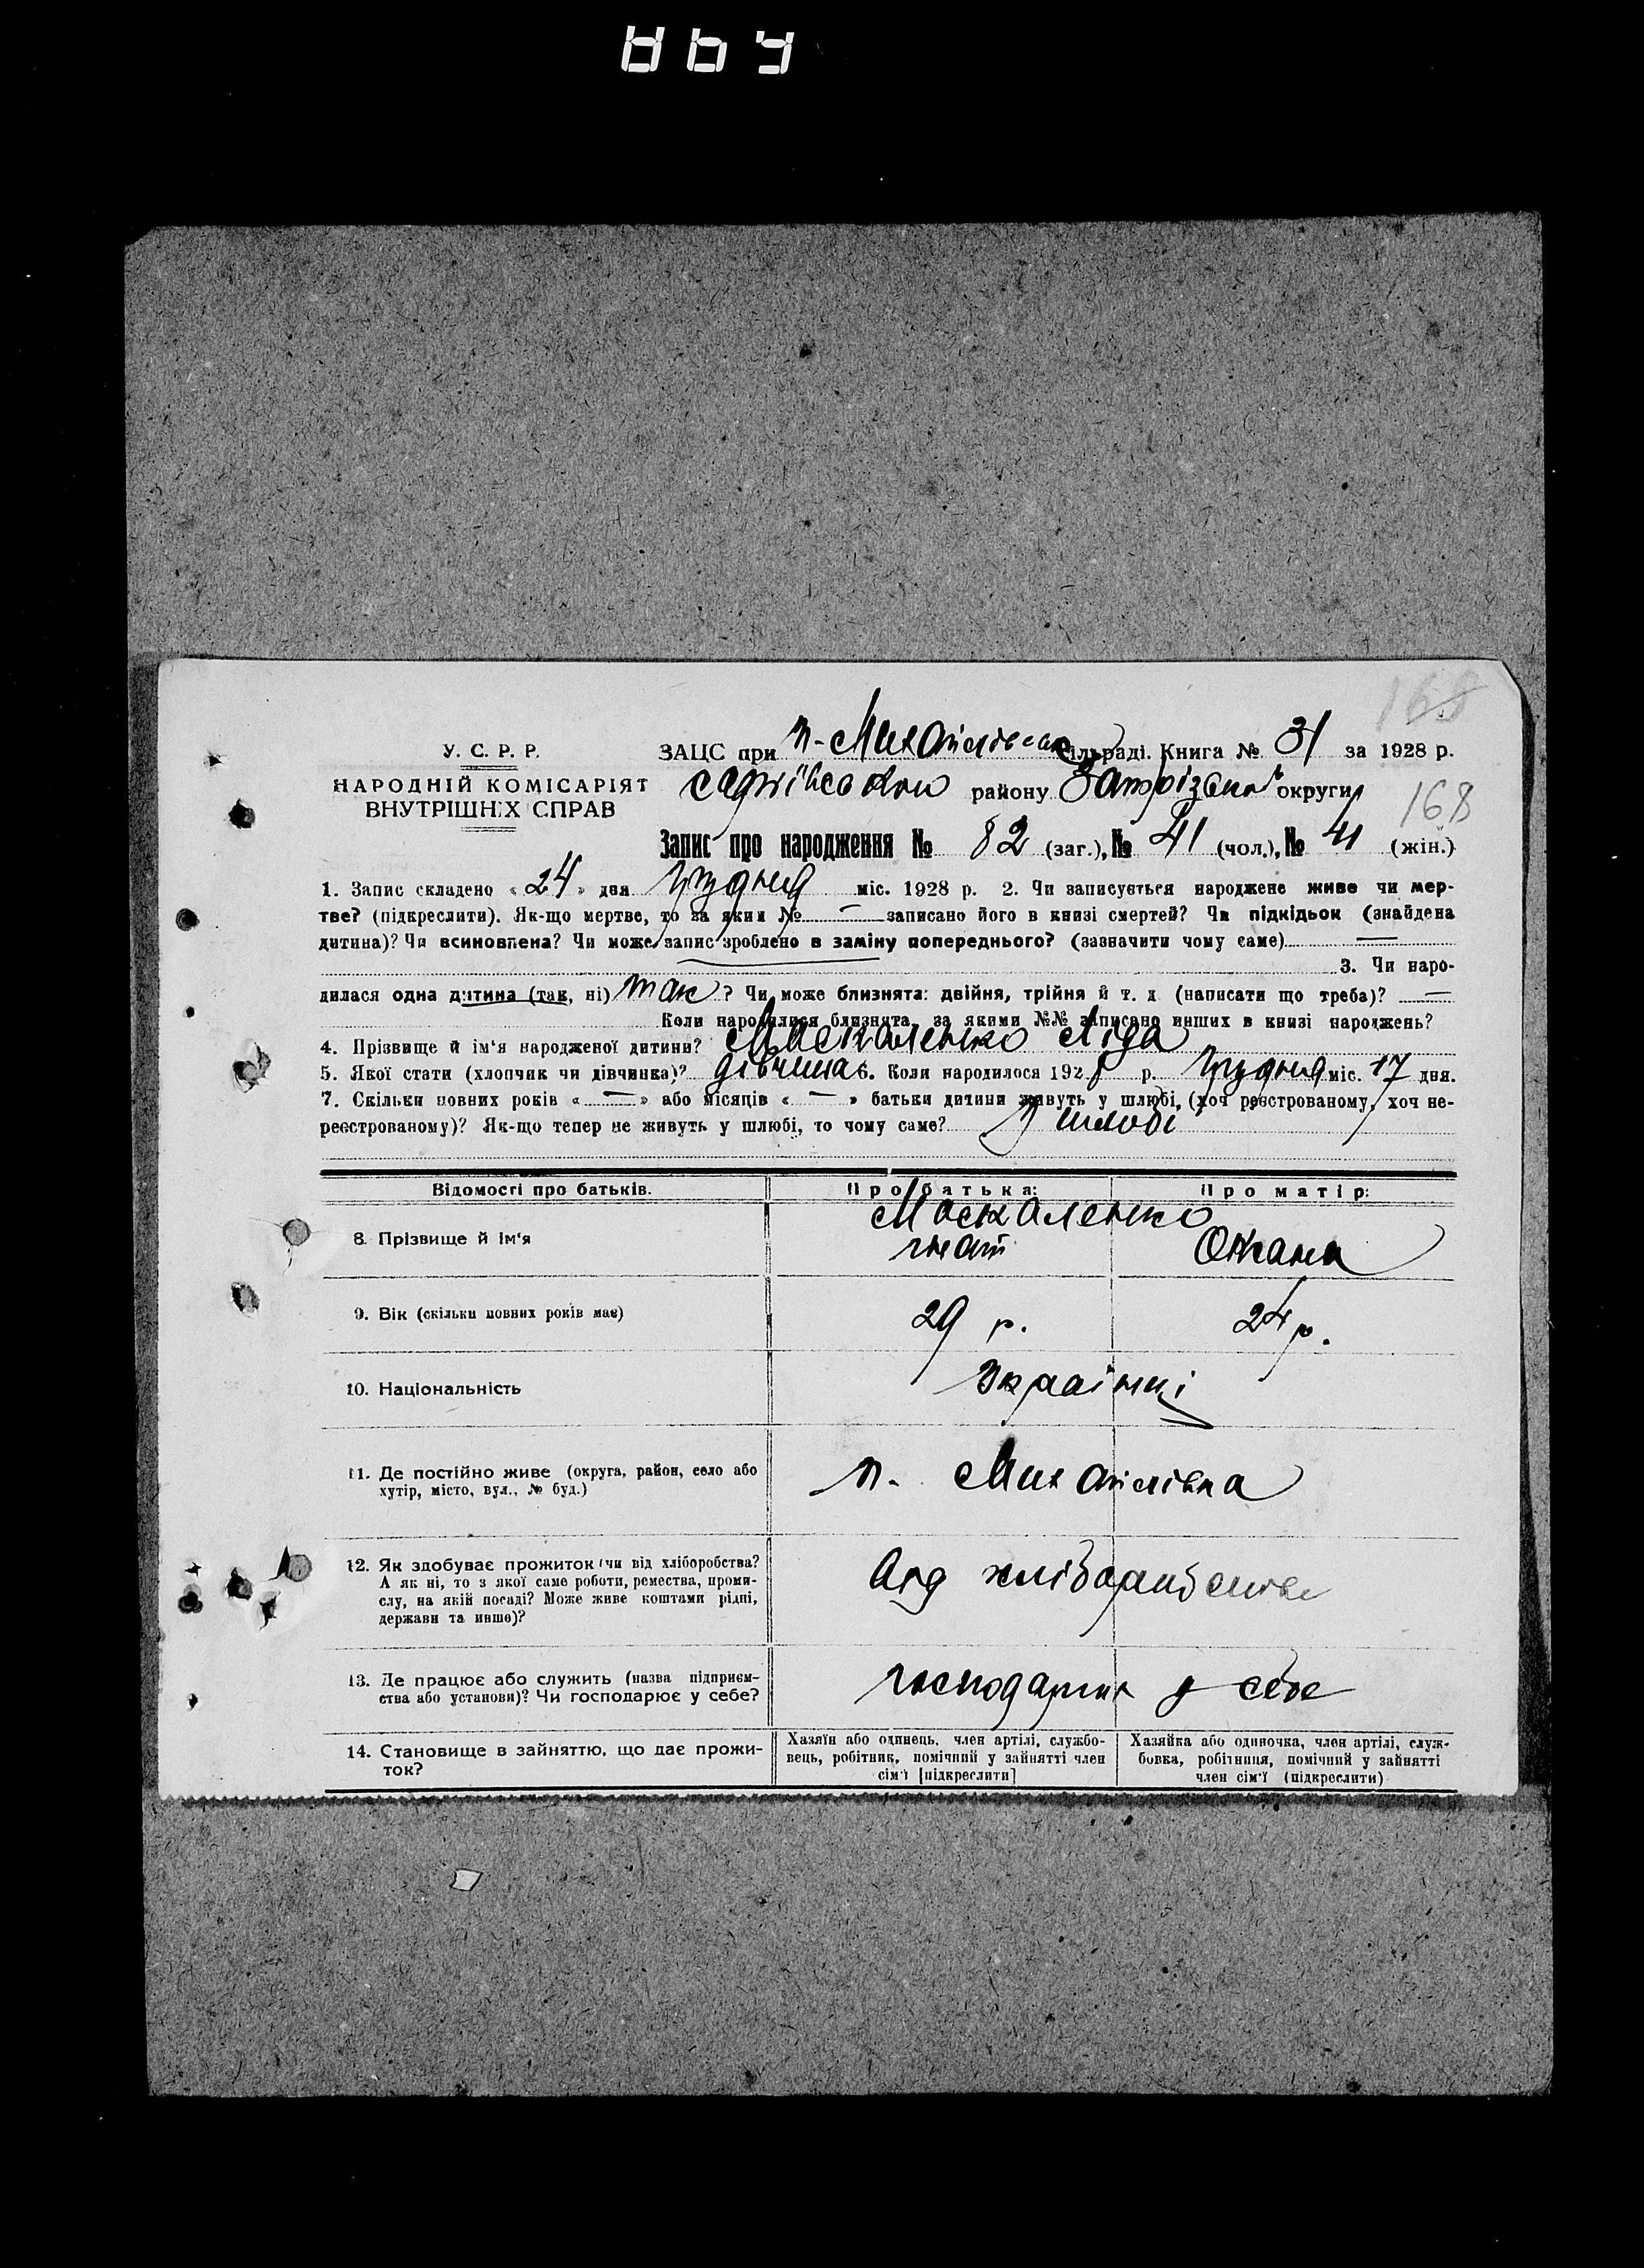 168
У. С. Р. Р.
НАРОДНІЙ КОМІСАРІЯТ
ВНУТРІШНІХ СПРАВ
ЗАЦС при п-Михайлівськ сільраді. Книга № 31 за 1928 р.
району Запорізької округи
168
Запис про народження № 82 (заг.), № 41 (чол.), № 41 (жін.)
1. Запис складено «24» дня грудня міс. 1928 р. 2. Чи записується народжене живе чи мер-
тве? (підкреслити). Як-що мертве, то за яким № — записано його в книзі смертей? Чи підкідьок (знайдена
дитина)? Чи всиновлена? Чи може запис зроблено в заміну попереднього? (зазначити чому саме) —
3. Чи наро-
дилася одна дитина (так, ні) так? Чи може близнята: двійня, трійня й т. д. (написати що треба)? —
Коли народилися близнята, за якими №№ записано инших в книзі народжень?
4. Прізвище й ім'я народженої дитини? Маскаленко Ліда
5. Якої стати (хлопчик чи дівчинка)? дівчина 6. Коли народилося 1928 р. грудня міс. 17 дня.
7. Скільки повних років «—» або місяців «—» батьки дитини живуть у шлюбі, (хоч реєстрованому, хоч не-
реєстрованому)? Як-що тепер не живуть у шлюбі, то чому саме? У шлюбі
Відомості про батьків. Про батька: Про матір:
Маскаленко
8. Прізвище й ім'я Гнат Оксана
9. Вік (скільки повних років має) 29 р. 24 р.
10. Національність Українці
11. Де постійно живе (округа, район, село або
хутір, місто, вул., № буд.) п. Михайлівка
12. Як здобуває прожиток (чи від хліборобства?
А як ні, то з якої саме роботи, ремества, проми-
слу, на якій посаді? Може живе коштами рідні,
держави та инше)?
Від
13. Де працює або служить (назва підприєм-
ства або установи)? Чи господарює у себе?
у себе
14. Становище в зайняттю, що дає прожи-
ток?
Хазяїн або одинець, член артілі, службо-
вець, робітник, помічний у зайнятті член
сім'ї [підкреслити]
Хазяйка або одиночка, член артілі, служ-
бовка, робітниця, помічний у зайнятті
член сім'ї (підкреслити)